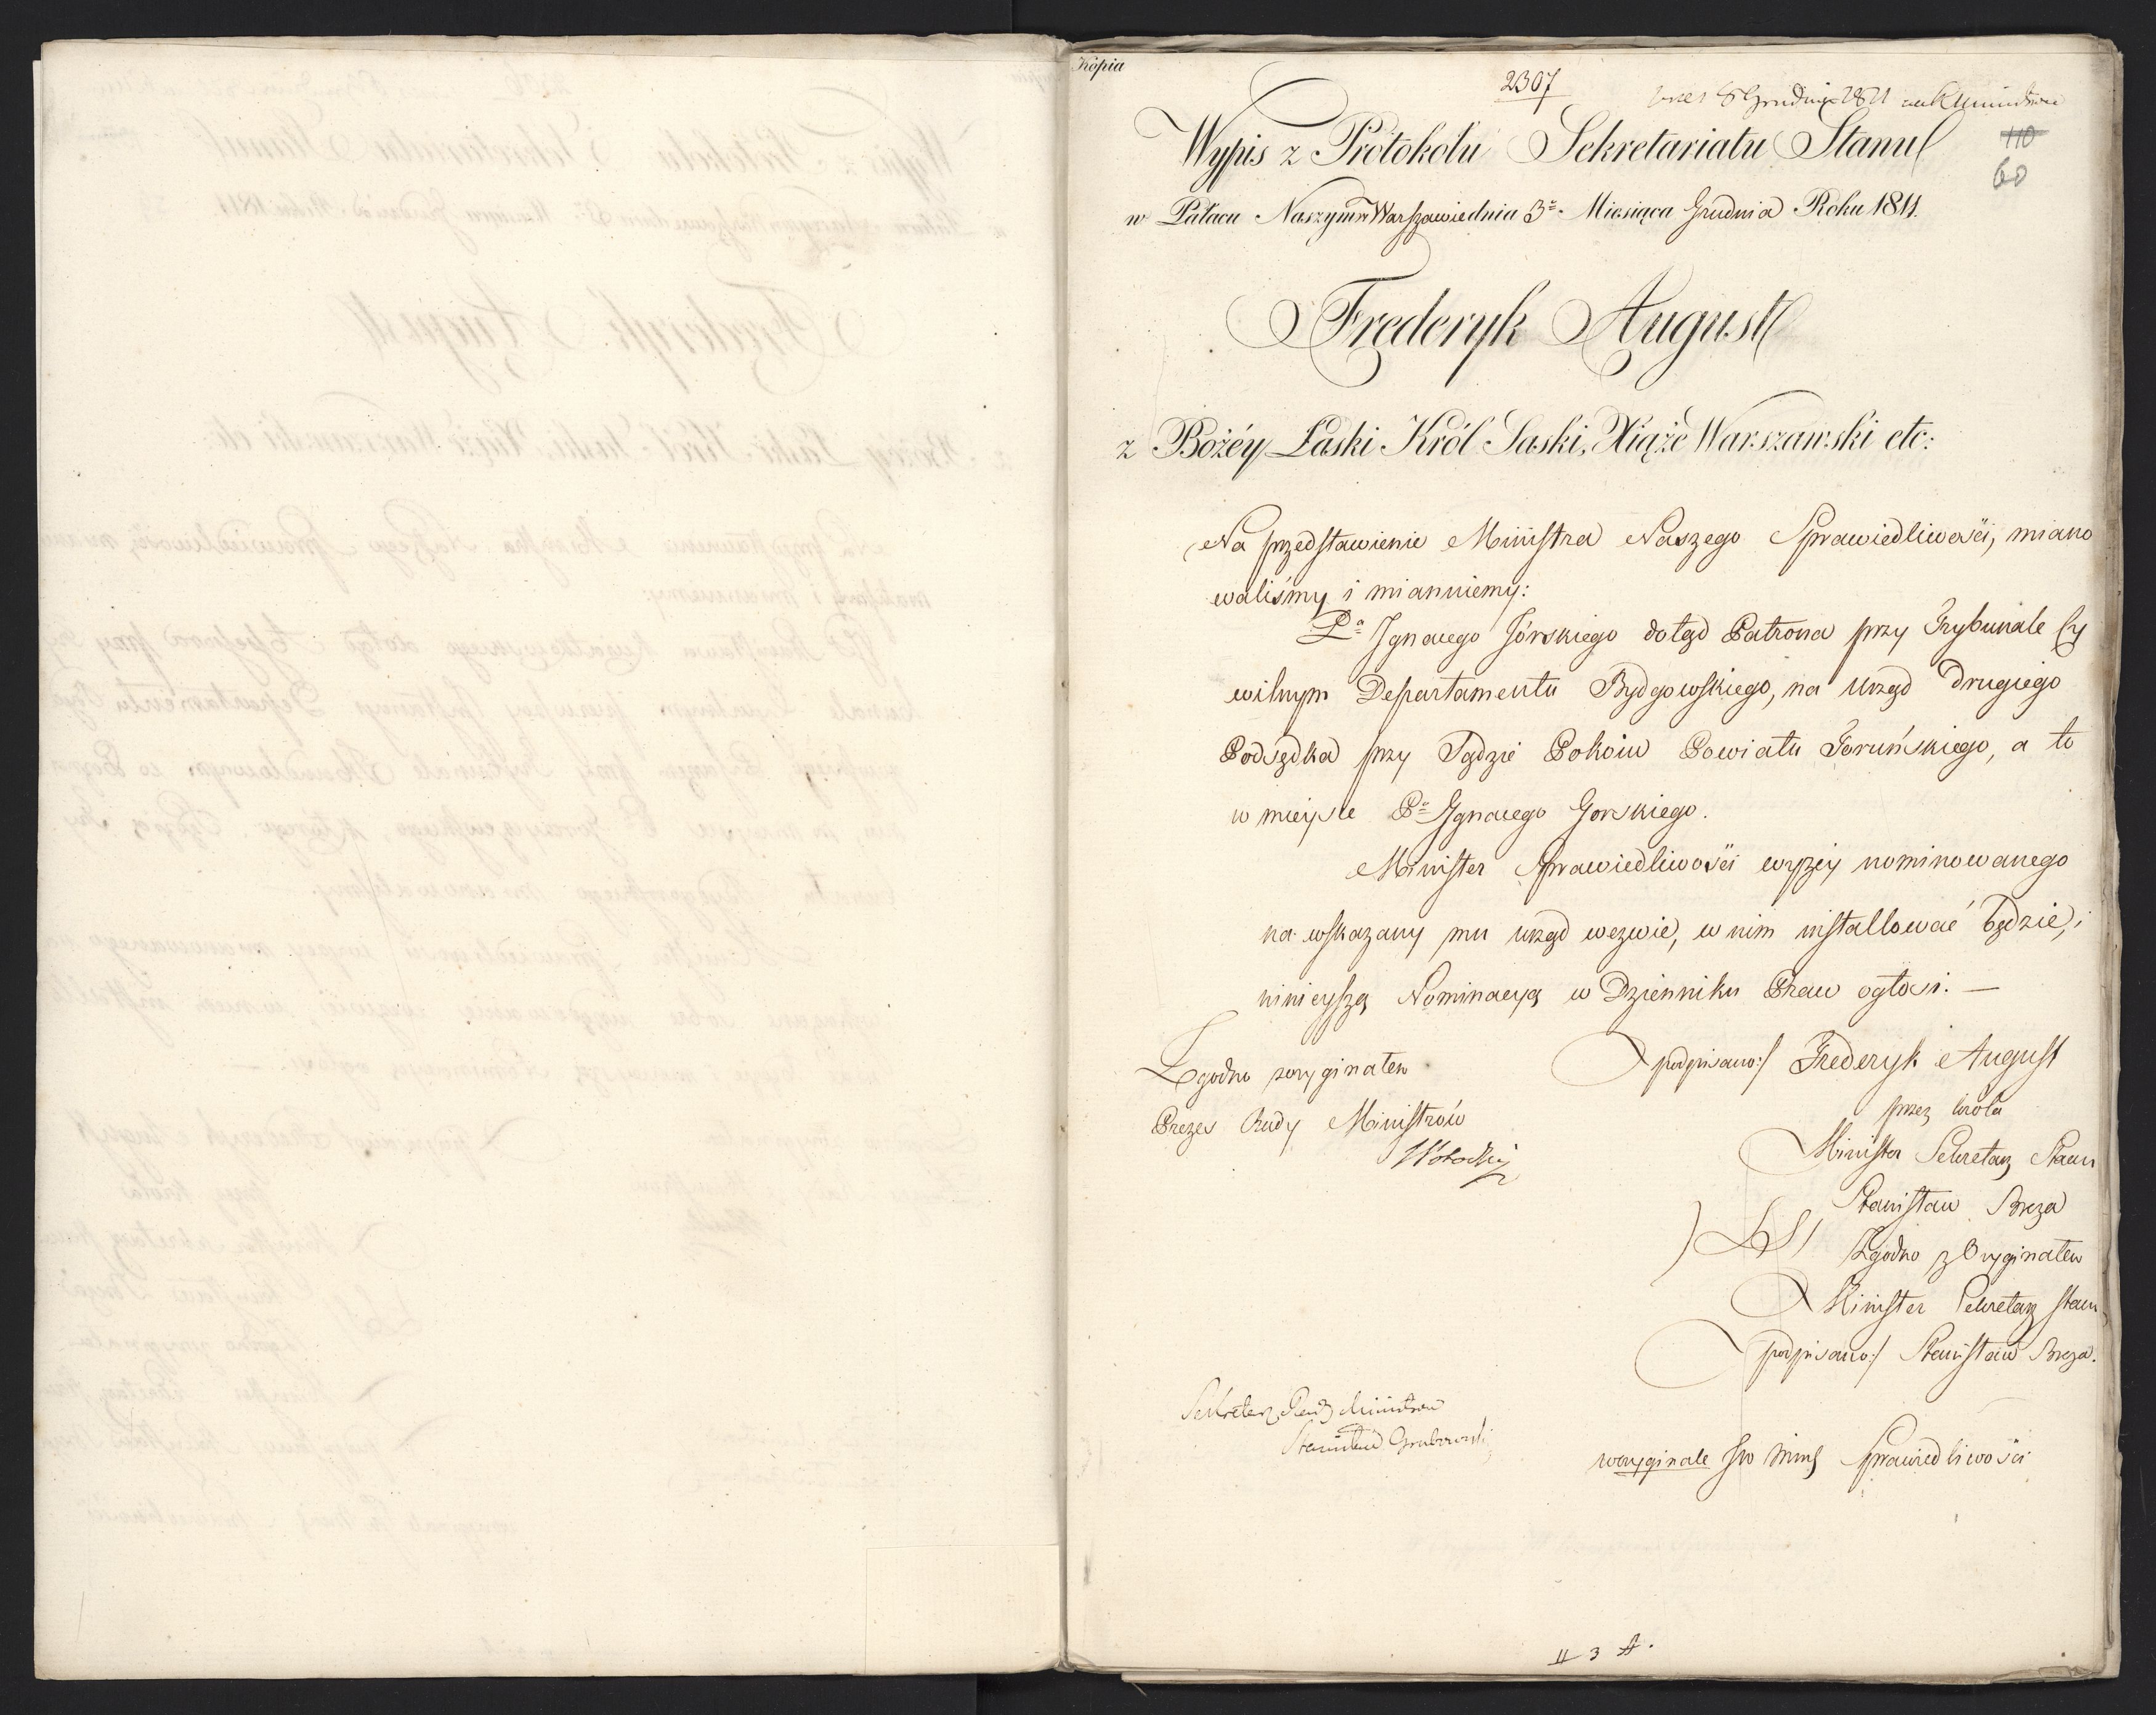 Kopia
2307
Grudnia 1811
110
60
Wypis z Protokółu Sekretariatu Stanu
w Pałacu Naszym w Warszawie dnia 3º Miesiąca Grudnia Roku 1811.
Frederyk August
z Bożéy Łaski Król Saski, Xiąże Warszawski etc:
Na przedstawienie Ministra Naszego Sprawiedliwości, miano
waliśmy i mianuiemy:
Pª Ignacego Górskiego dotąd Patrona przy Trybunale Cy
wilnym Departamentu Bydgowskiego, na urząd drugiego
Podsędka przy Sądzie Pokoiu Powiatu Toruńskiego, a to
w mieysce Pª Ignacego Gorskiego.
Minister Sprawiedliwości wyżey nominowanego
na wskazany mu urząd wezwie, w nim installować będzie, i
ninieyszą Nominacyą w Dzienniku Praw ogłosi. —
Zgodno z oryginałem
podpisano:/ Frederyk August
Prezes Rady Ministrów
przez Króla
Minister Sekretarz Stanu
Stanisław Breza
LS/ Zgodno z Oryginałem
Minister Sekretarz Stanu
podpisano:/ Stanisław Breza.
Sekretarz Rady Ministrów
Stanisław Grabowski
w oryginale Minis Sprawiedliwości
3